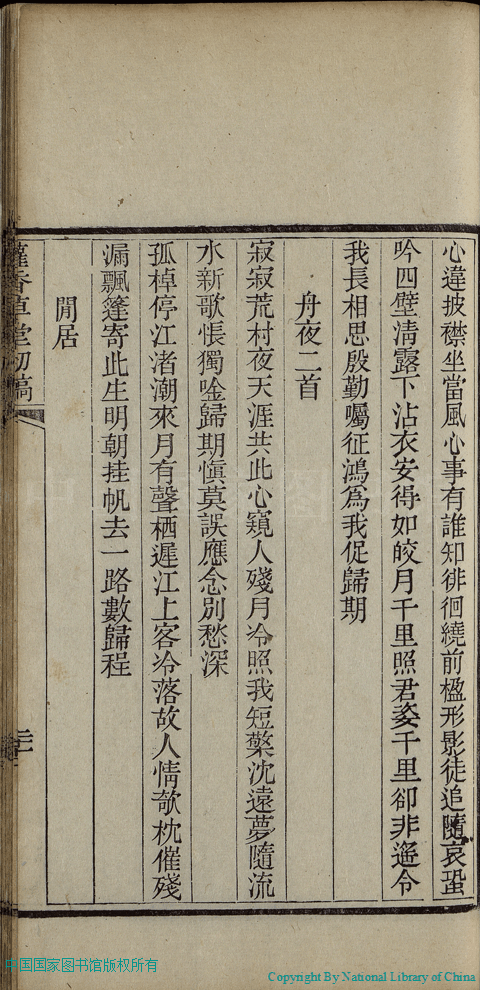 心違披襟坐當風心事有誰知徘徊繞前楹形影徒追隨哀蛩
吟四壁清露下沾衣安得如皎月千里照君姿千里卻非遙令
我長相思殷勤囑征鴻為我促歸期
舟夜二首
寂寂荒村夜天涯共此心窺人殘月冷照我短檠沈遠夢隨流
水新歌悵獨唫歸期愼莫誤應念別愁深
孤棹停江渚潮來月有聲栖遲江上客冷落故人情欹枕催殘
漏飄篷寄此生明朝挂帆去一路數歸程
閒居
香草堂初稿
中国国家图书馆版权所有
Copyright By National Library of China